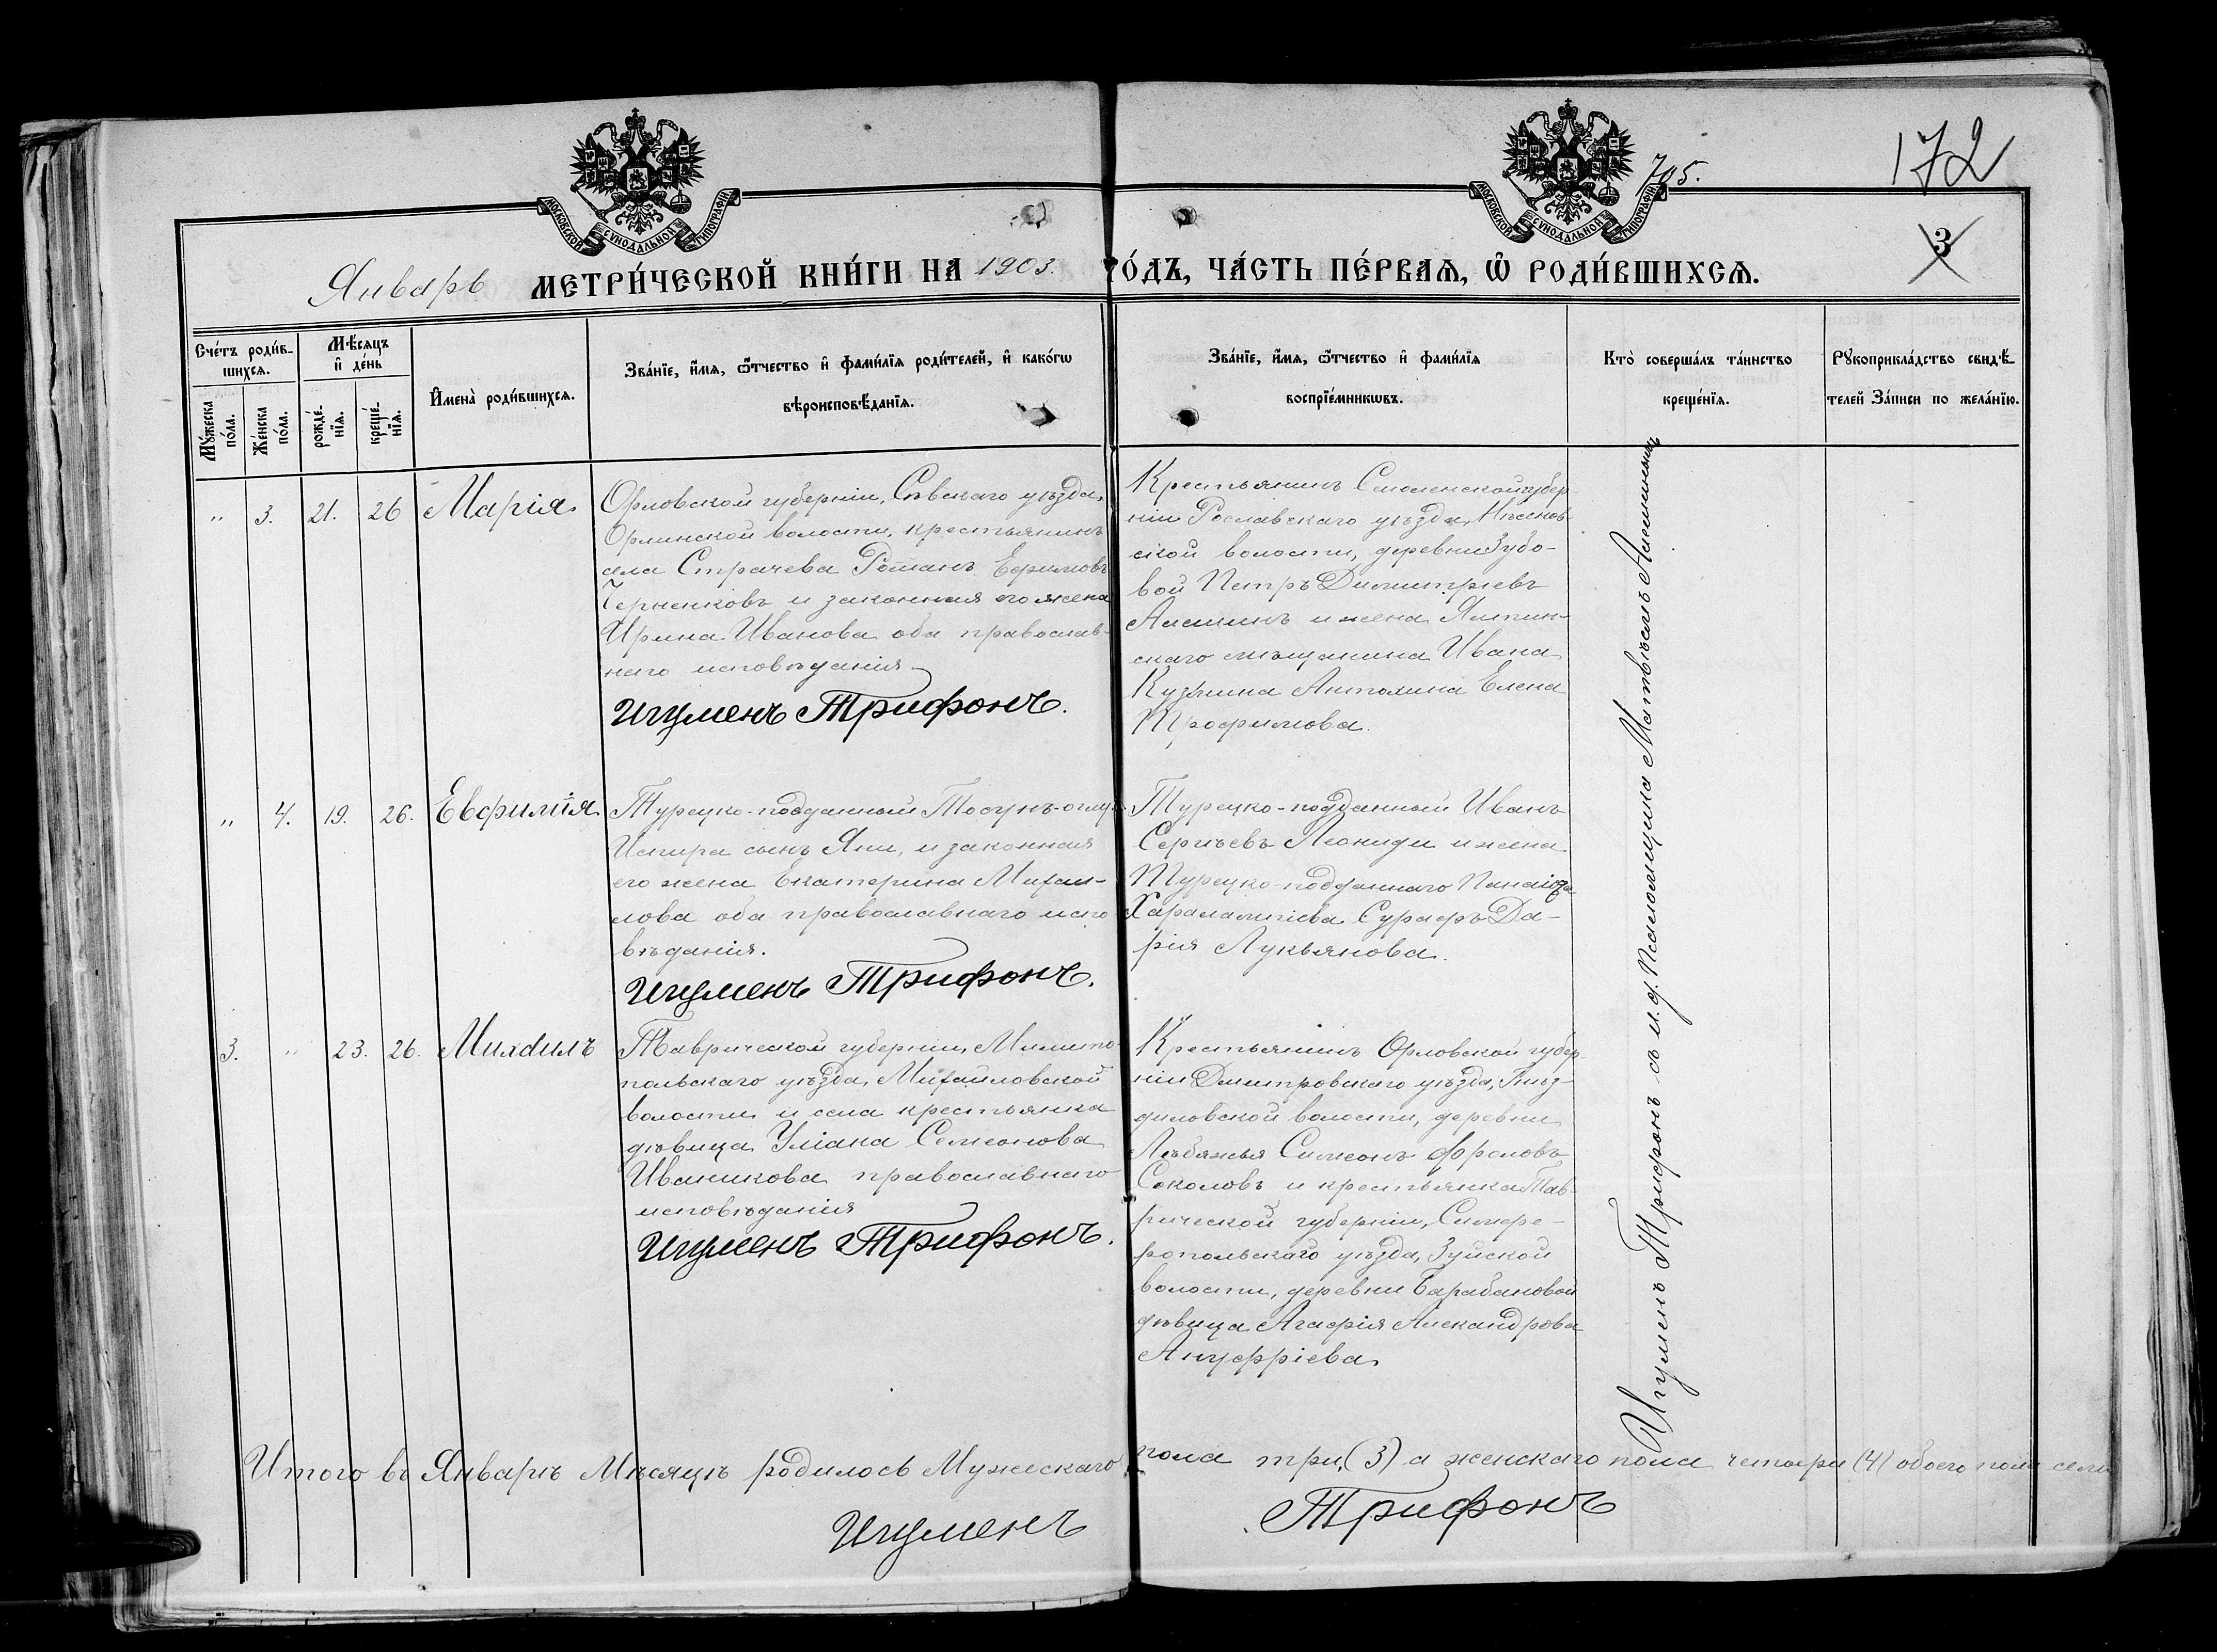 705.
172
3
МОСКОВСКОЙ СѴНОДАЛЬНОЙ ТИПОГРАФІИ.
МОСКОВСКОЙ СѴНОДАЛЬНОЙ ТИПОГРАФІИ.
Январь МЕТРИ́ЧЕСКОЙ КНИ́ГИ НА 1903. ГО́ДЪ, ЧА́СТЬ ПЕ́РВАЯ, Ѿ РОДИ́ВШИХСЯ.
Сче́тъ роди́в-
шихся.
Мѣсяцъ
и де́нь
Му́жеска
по́ла.
Же́нска
по́ла.
рожде́-
нїя.
креще́-
нїя.
Имена̀ роди́вшихся.
Зва́нїе, имя, ѻтчество и фами́лїя роди́телей, и како́гѡ
вѣроисповѣданїя.
Зва́нїе, имя, ѻтчество и фами́лїя
воспрїе́мникѡвъ.
Кто̀ соверша́лъ та́инство
креще́нїя.
Рукоприкла́дство свидѣ-
телей За́писи по жела́нїю.
„ 3. 21. 26 Марія
Орловской губерніи, Сѣвскаго уѣзда,
Орлинской волости, крестьянинъ
села Страчева Романъ Ефимовъ
Черненковъ и законная его жена
Ирина Иванова оба православ-
наго исповѣданія
Игуменъ Трифонъ.
Крестьянинъ Смоленской губер-
ніи Рославскаго уѣзда,
ской волости, деревни Зубо-
вой Петръ Димитріевъ
Алешинъ и жена Ялтин-
скаго мѣщанина Ивана
Кузьмина Антохина Елена
Трофимова.
„ 4. 19. 26. Евфимія
Турецко-подданный Тосунъ-оглу
Испира сынъ Яни, и законная
его жена Екатерина Михаи-
лова оба православнаго испо
вѣданія.
Игуменъ Трифонъ.
Турецко-подданный Иванъ
Сергѣевъ Леониди и жена
Турецко-подданнаго Панаіота
Харалампіева Сурафъ Да-
рія Лукьянова.
3. „ 23. 26. Михаилъ
Таврической губерніи, Мелито-
польскаго уѣзда, Михайловской
волости и села крестьянка
дѣвица Уліана Семеонова
Иваникова православнаго
исповѣданія
Игуменъ Трифонъ.
Крестьянинъ Орловской губер-
ніи Дмитровскаго уѣзда, Гнѣз-
диловской волости, деревни
Лѣбяжья Симеонъ Фроловъ
Соколовъ и крестьянка Тав-
рической губерніи, Симфе-
ропольскаго уѣзда, Зуйской
волости, деревни Барабановой
дѣвица Агафія Александрова
Ануфріева.
Игуменъ Трифонъ съ и.д. Псаломщика Матвѣемъ
Итого въ Январѣ Мѣсяцѣ родилось Мужескаго пола три (3) а женскаго пола четыри (4) обоего пола семь
Игуменъ Трифонъ